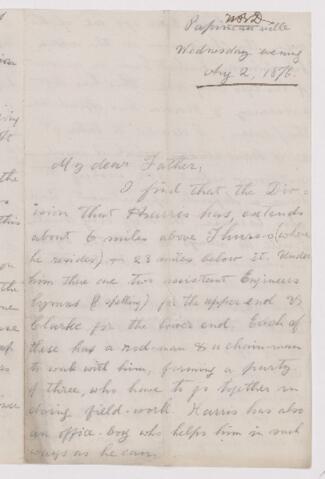 Papineauville
Wednesday evening
Aug 2, 1876.
My dear Father,
I find that the Div-
ision that Harris has, extends
about 6 miles above Thurso (where
he resides) & 23 miles below it. Under
him there are two assistant Engineers
for the upper end &
Clarke for the lower end. Each of
these has a rod-man & a chain-man
to work with him, forming a party
of three, who have to go together in
doing field-work. Harris has also
an office-boy who helps him in such
ways as he can.